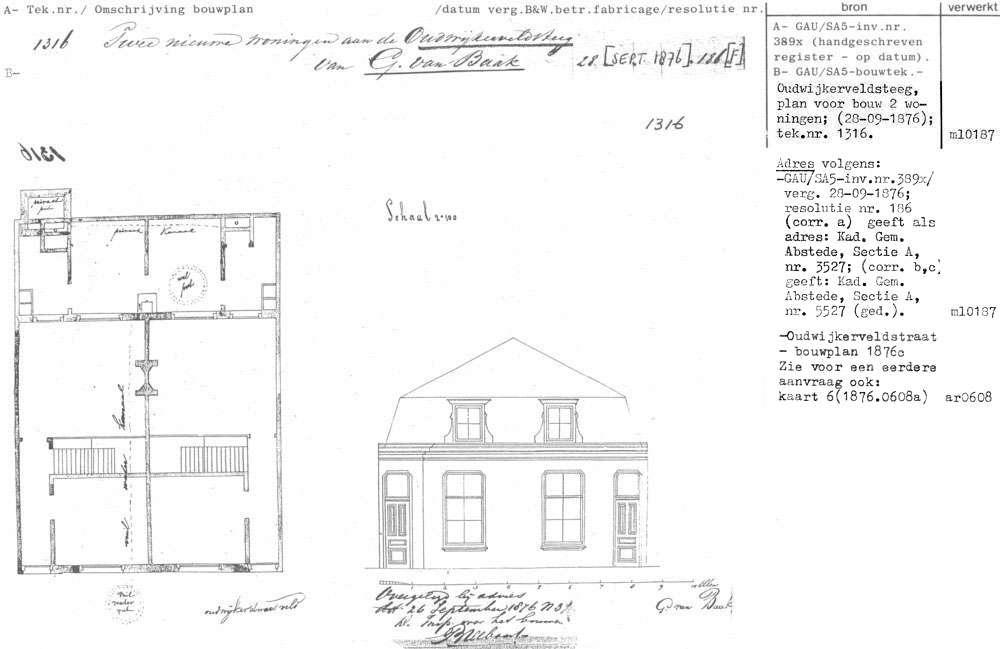 A- Tek.nr./ Omschrijving bouwplan /datum verg.B&W.betr.fabricage/resolutie nr. bron verwerkt
1316 Twee nieuwe woningen aan de Oudwijkerveldsteeg
van G. van Baak 28 [SEPT. 1876]. 186 [F]
B-
A- GAU/SA5-inv.nr.
389x (handgeschreven
register - op datum).
B- GAU/SA5-bouwtek.-
Oudwijkerveldsteeg,
plan voor bouw 2 wo-
ningen; (28-09-1876);
tek.nr. 1316. ml0187
Adres volgens:
-GAU/SA5-inv.nr.389x/
verg. 28-09-1876;
resolutie nr. 186
(corr. a) geeft als
adres: Kad. Gem.
Abstede, Sectie A,
nr. 3527; (corr. b,c)
geeft: Kad. Gem.
Abstede, Sectie A,
nr. 5527 (ged.). ml0187
-Oudwijkerveldstraat
- bouwplan 1876c
Zie voor een eerdere
aanvraag ook:
kaart 6(1876.0608a) ar0608
1316
1316
Schaal 1-100
privaat
put
privaat Kanaal
wel
put
vuil water kanaal
Vuil
water
put
1 2 3 4 5 6 7 8 9 10 ellen
Overgelegd bij advies
dd. 26 September 1876 N 31
d. Insp. over het bouwen
G. van Baak